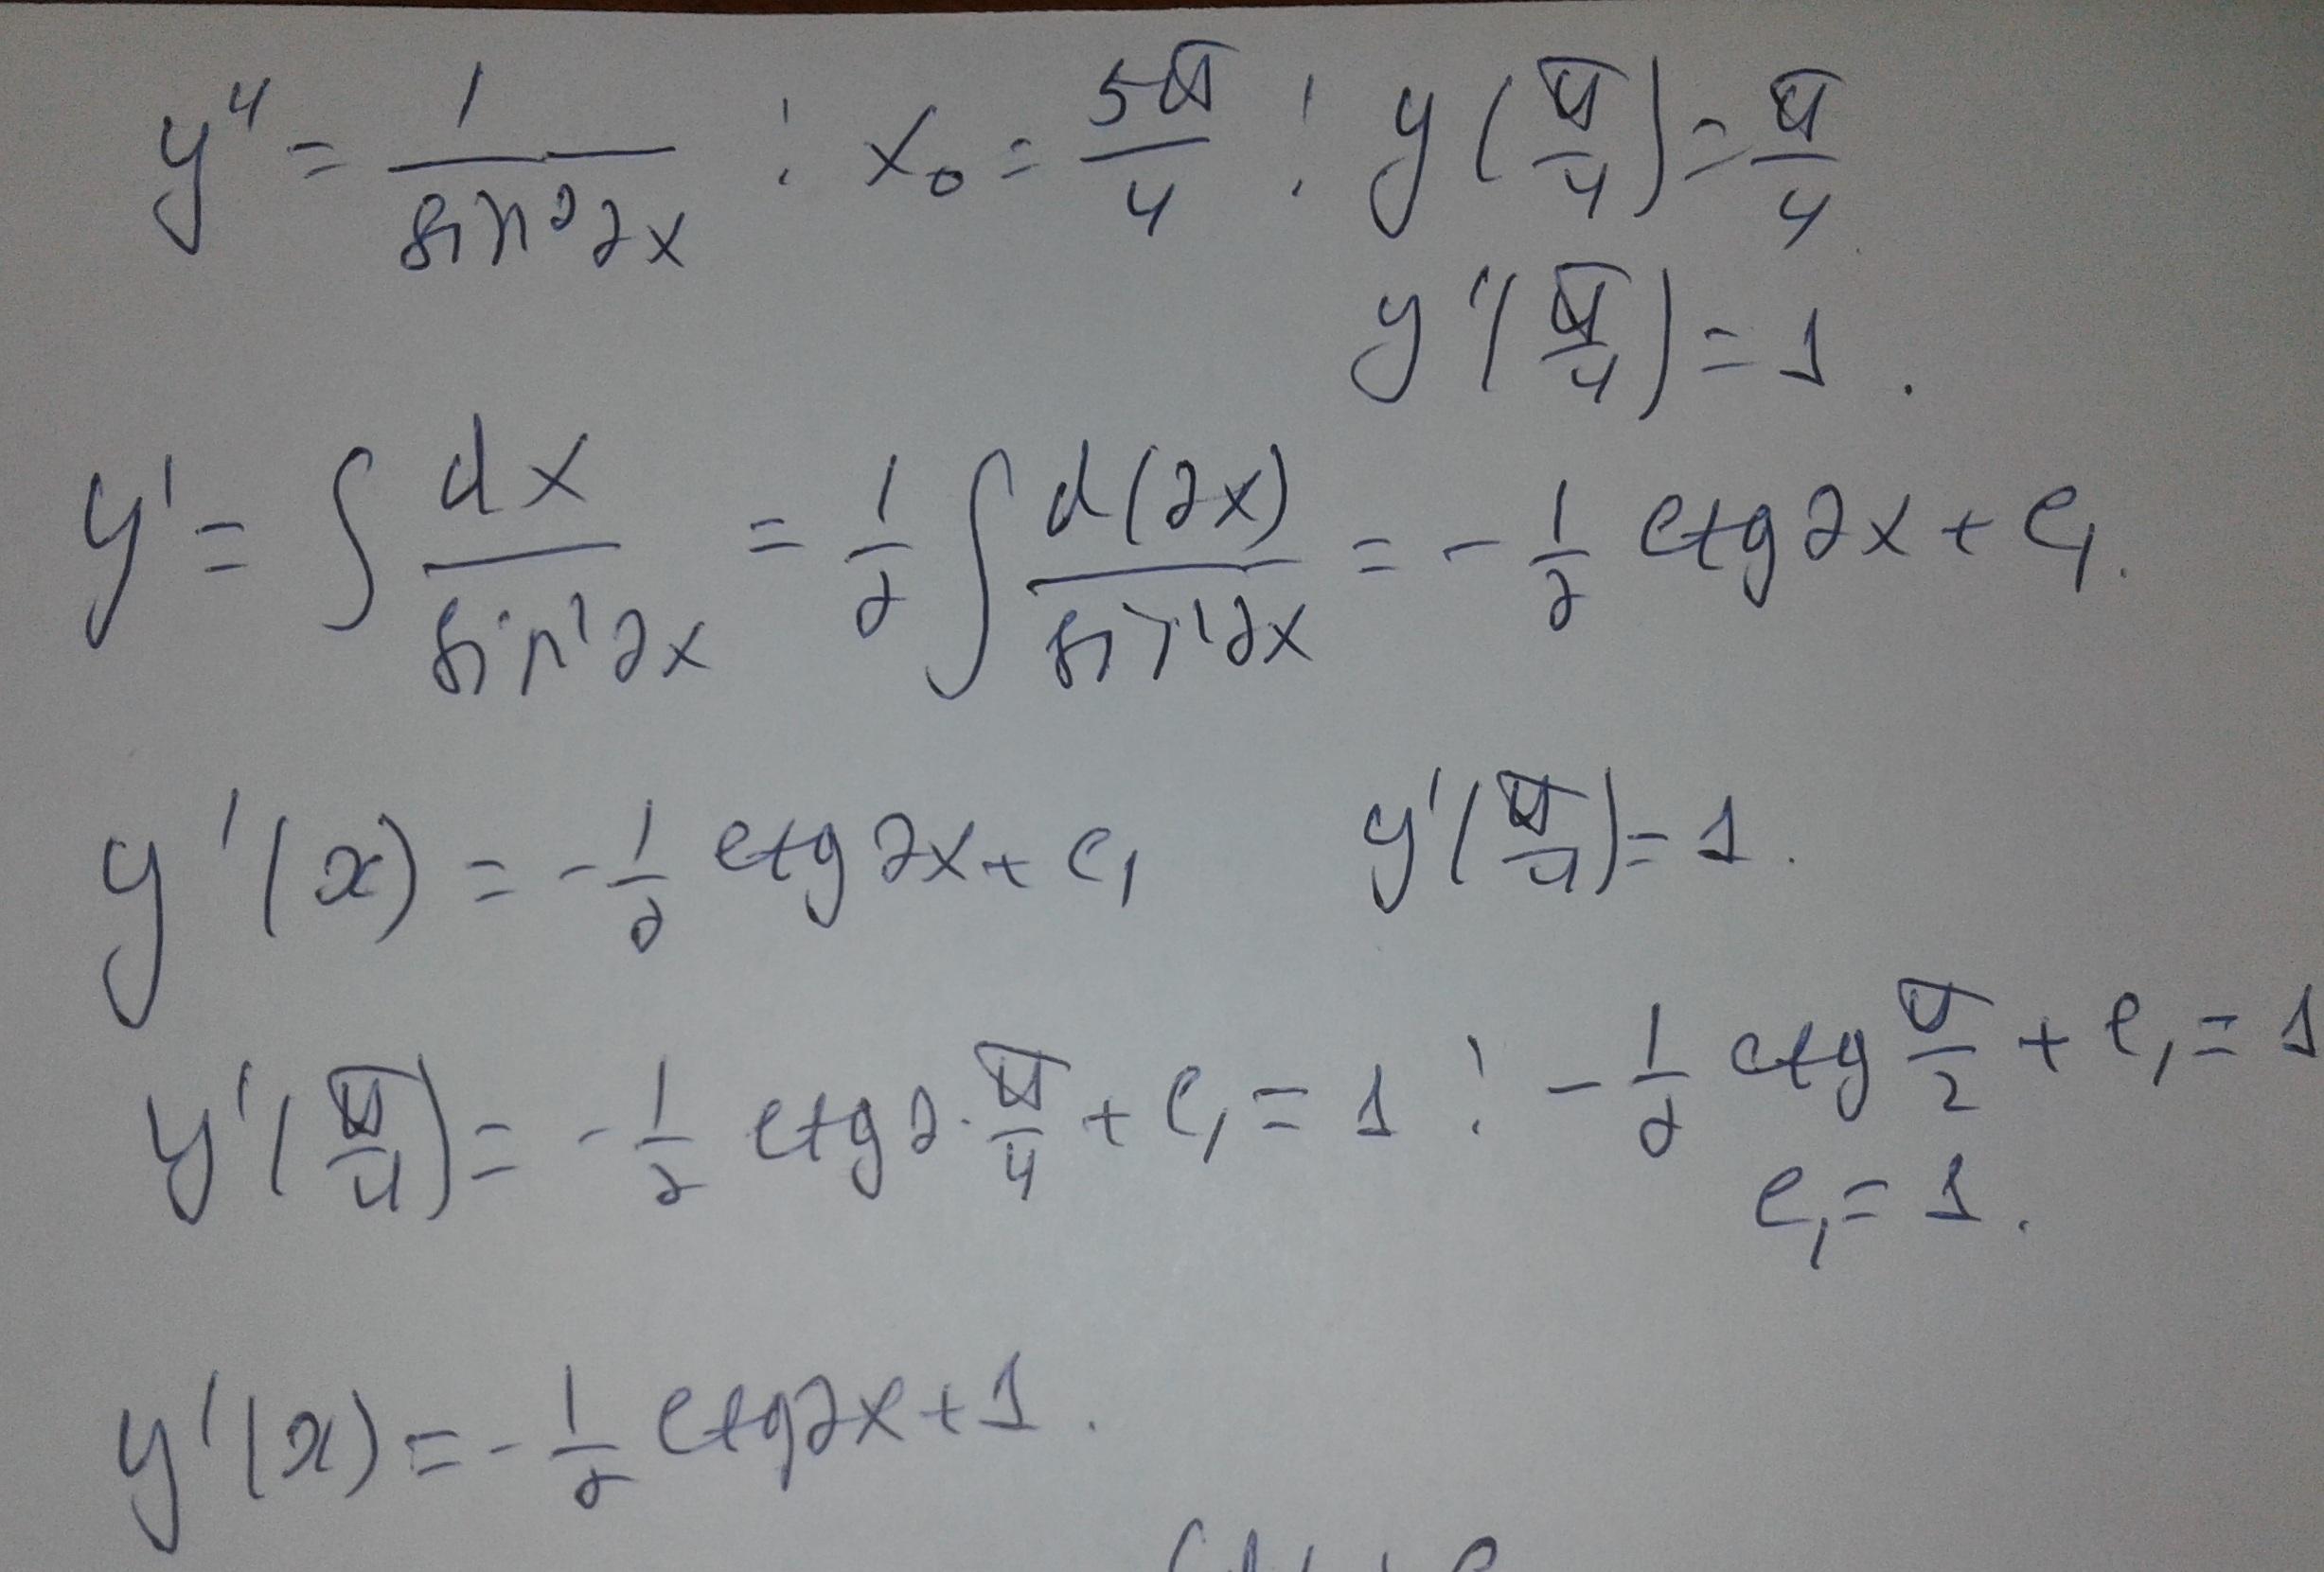 y'' = 1/sin²2x ; x₀ = 5π/4 ; y(π/4) = π/4
y'(π/4) = 1.
y' = ∫ dx/sin²2x = 1/2 ∫ d(2x)/sin²2x = -1/2 ctg 2x + C₁.
y'(x) = -1/2 ctg 2x + C₁ y'(π/4) = 1.
y'(π/4) = -1/2 ctg 2·π/4 + C₁ = 1 ; -1/2 ctg π/2 + C₁ = 1
C₁ = 1.
y'(x) = -1/2 ctg 2x + 1.